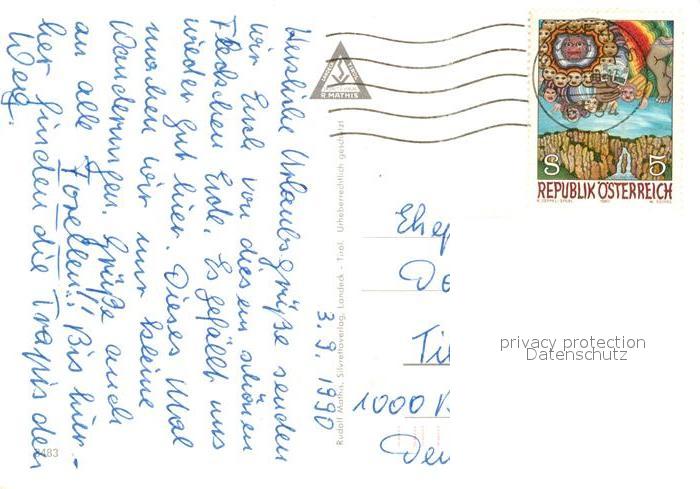 3. 9. 1990
Herzliche Urlaubsgrüße senden
wir Euch von diesem schönen
Fleckchen Erde. Es gefällt uns
wieder gut hier. Dieses Mal
machen wir nur kleine
Wanderungen. Grüße auch
an alle Forellen!! Bis hier-
her finden die Trapis den
Weg.
R. MATHIS
Rudolf Mathis, Silvrettaverlag, Landeck - Tirol. Urheberrechtlich geschützt
8483
S 5
REPUBLIK ÖSTERREICH
1000
privacy protection
Datenschutz